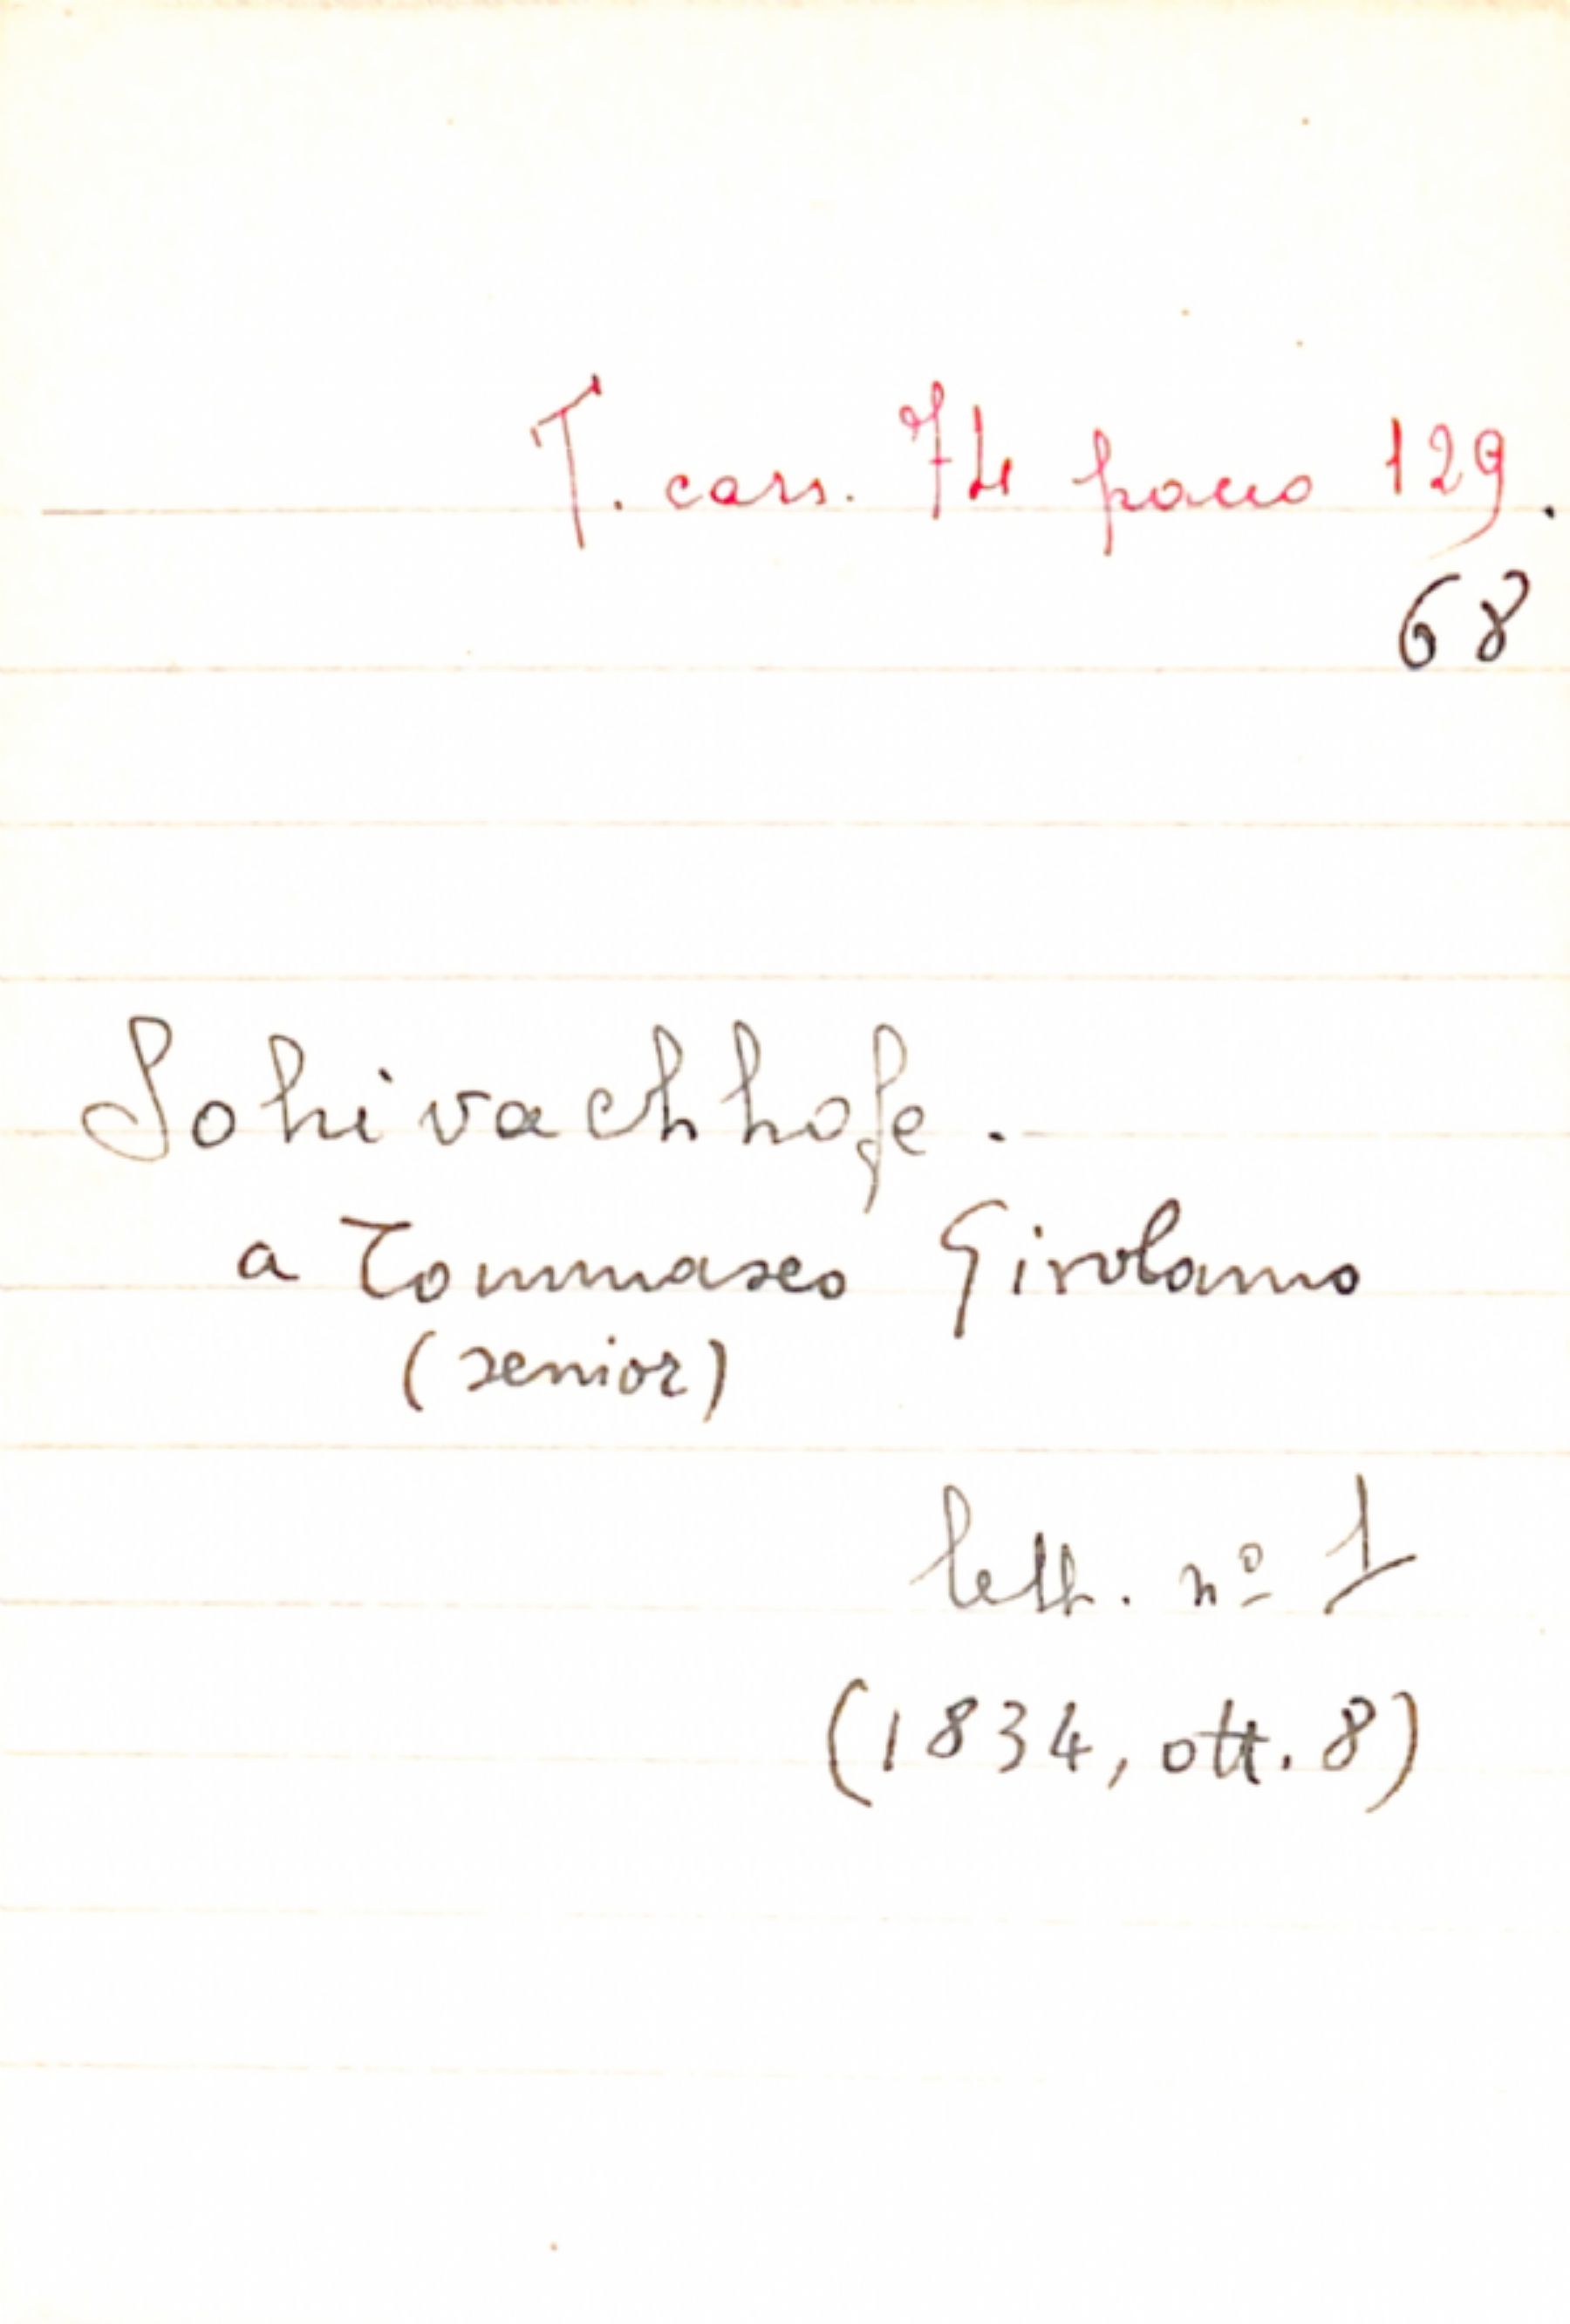 T. cass. 74 pacco 129.
68
Sohivachhofe.
a Tommaseo Girolamo
(senior)
lett. nº 1
(1834, ott. 8)